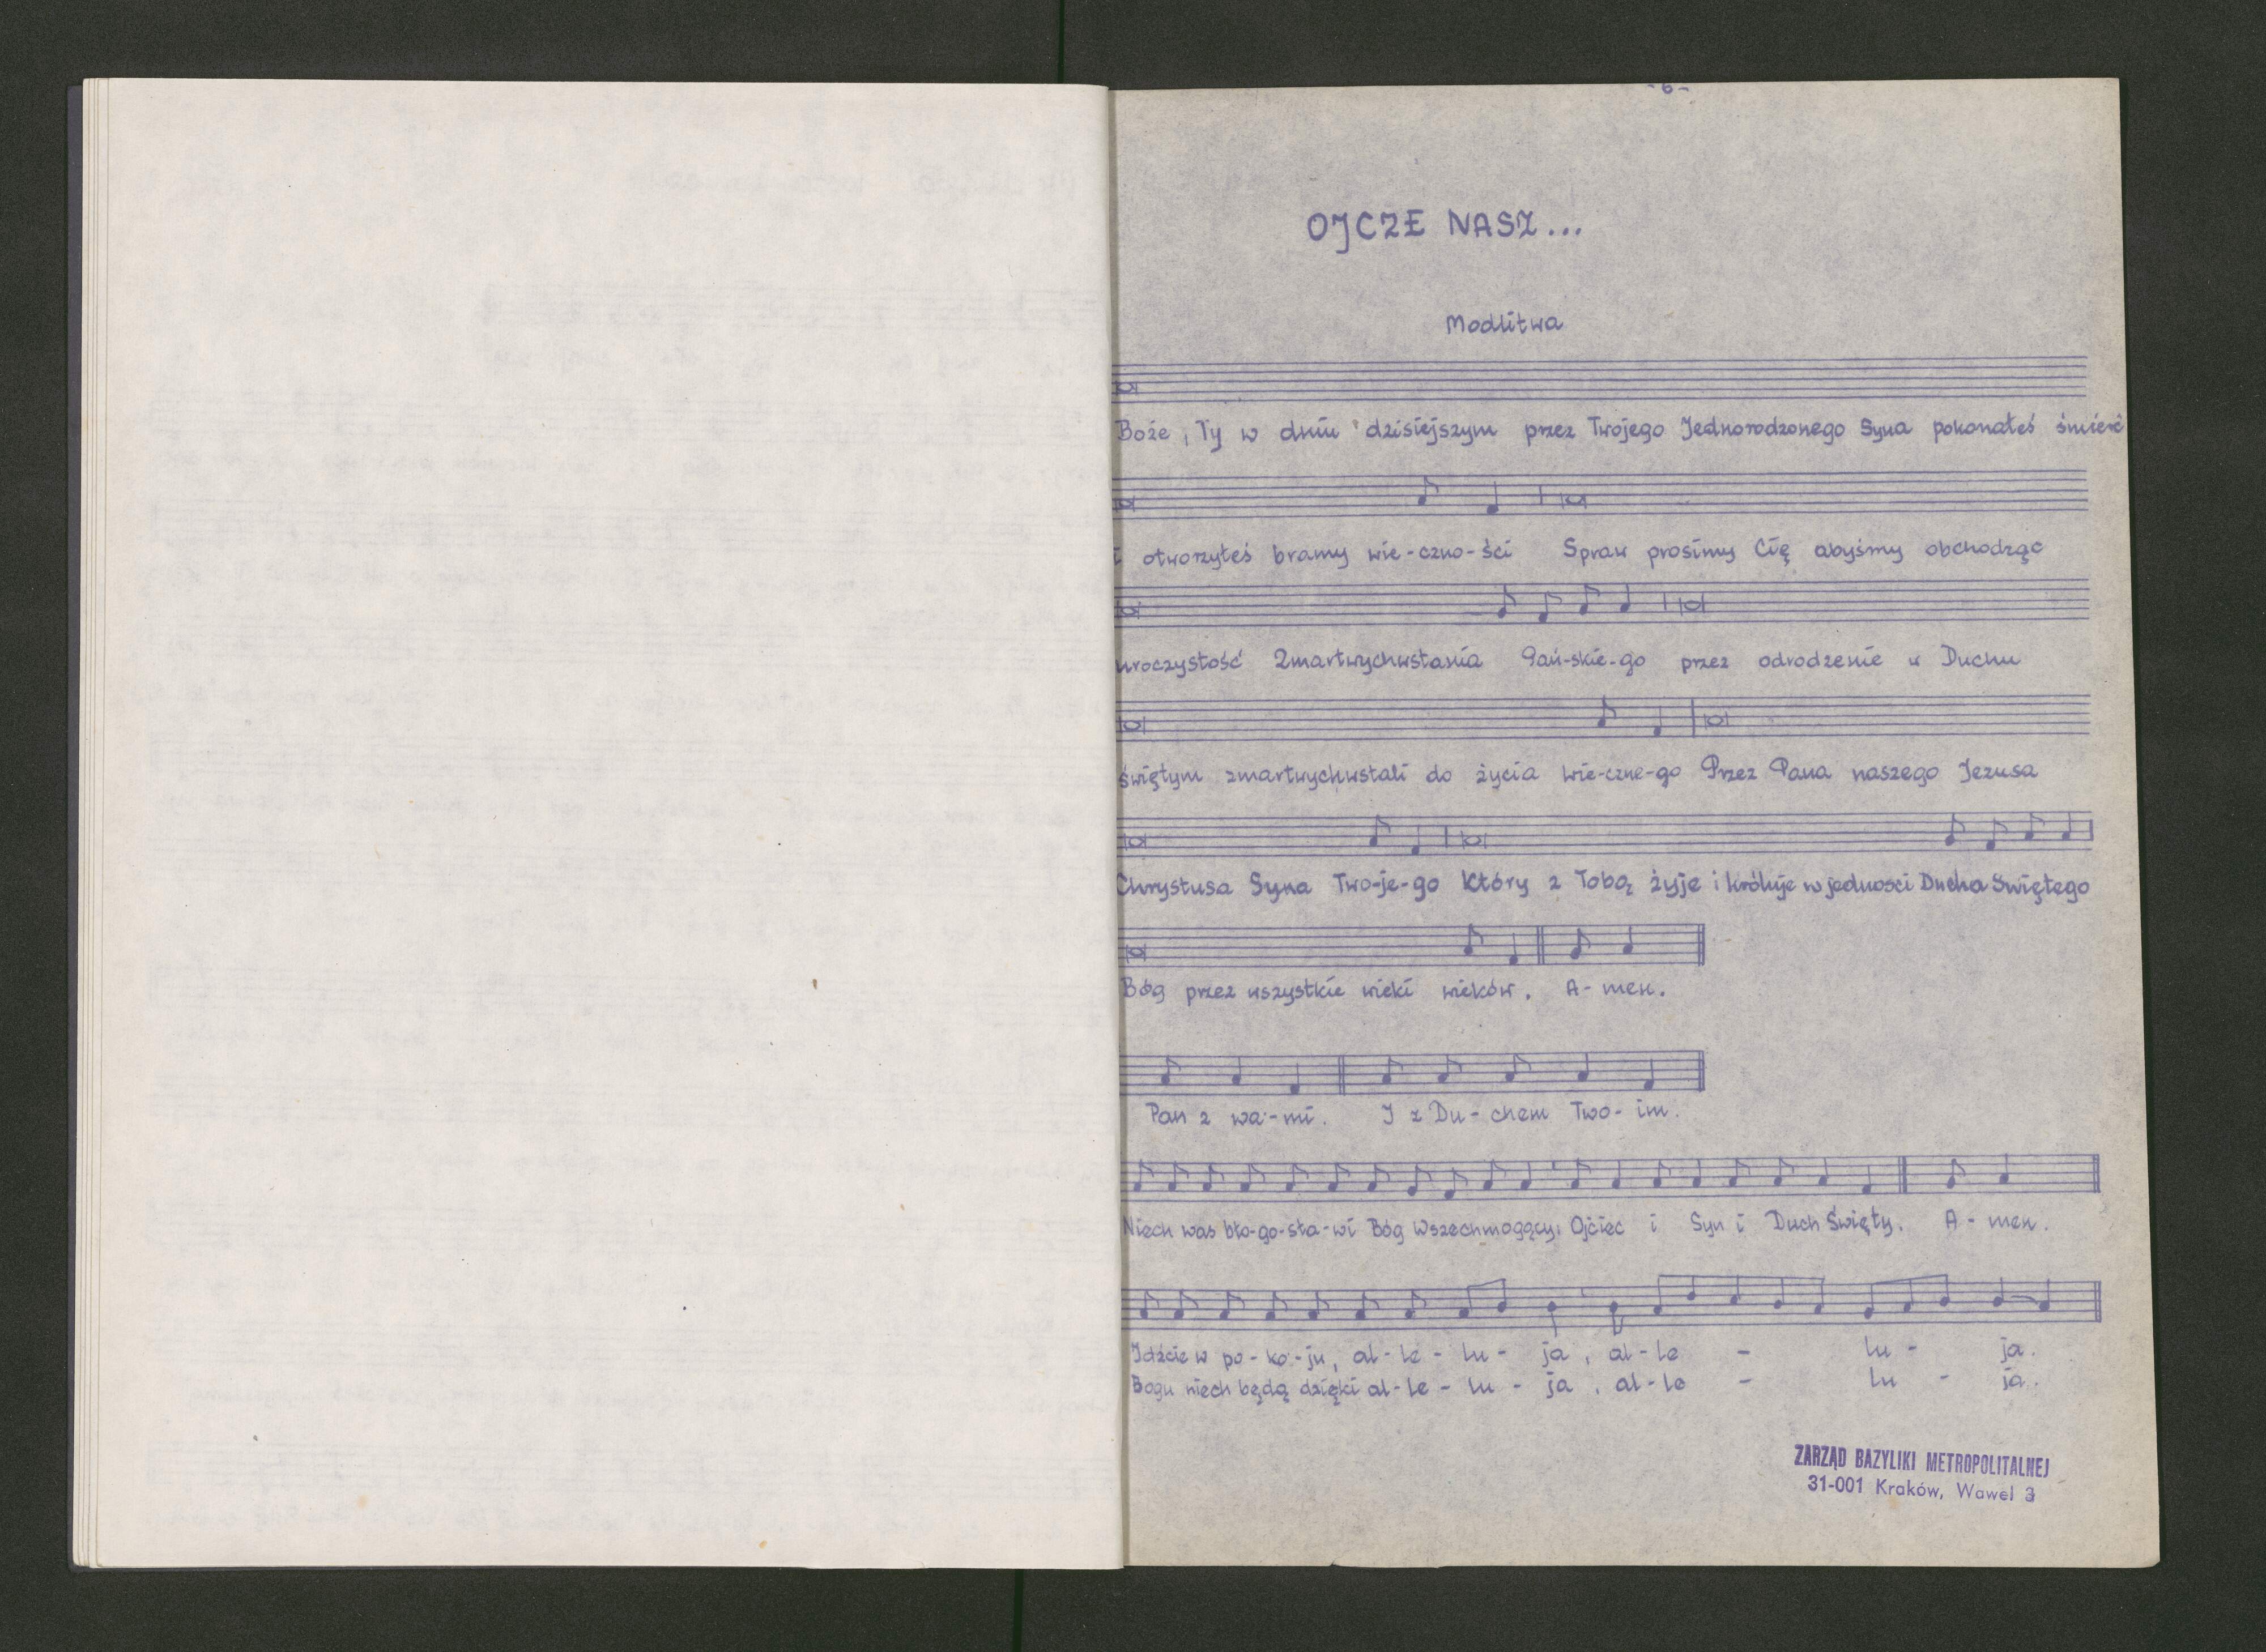 -6-
OJCZE NASZ...
Modlitwa
Boże, Ty w dniu dzisiejszym przez Twojego Jednorodzonego Syna pokonałeś śmierć
i otworzyłeś bramy wie-czno-ści Spraw prosimy Cię abyśmy obchodząc
uroczystość Zmartwychwstania Pań-skie-go przez odrodzenie w Duchu
świętym zmartwychwstali do życia wie-czne-go Przez Pana naszego Jezusa
Chrystusa Syna Two-je-go Który z Tobą żyje i króluje w jedności Ducha Świętego
Bóg przez wszystkie wieki wieków. A-men.
Pan z wa-mi. I z Du-chem Two-im.
Niech was bło-go-sła-wi Bóg Wszechmogący: Ojciec i Syn i Duch Święty. A-men.
Idźcie w po-ko-ju, al-le-lu-ja, al-le - lu - ja.
Bogu niech będą dzięki al-le-lu-ja, al-le - lu - ja.
ZARZĄD BAZYLIKI METROPOLITALNEJ
31-001 Kraków, Wawel 3